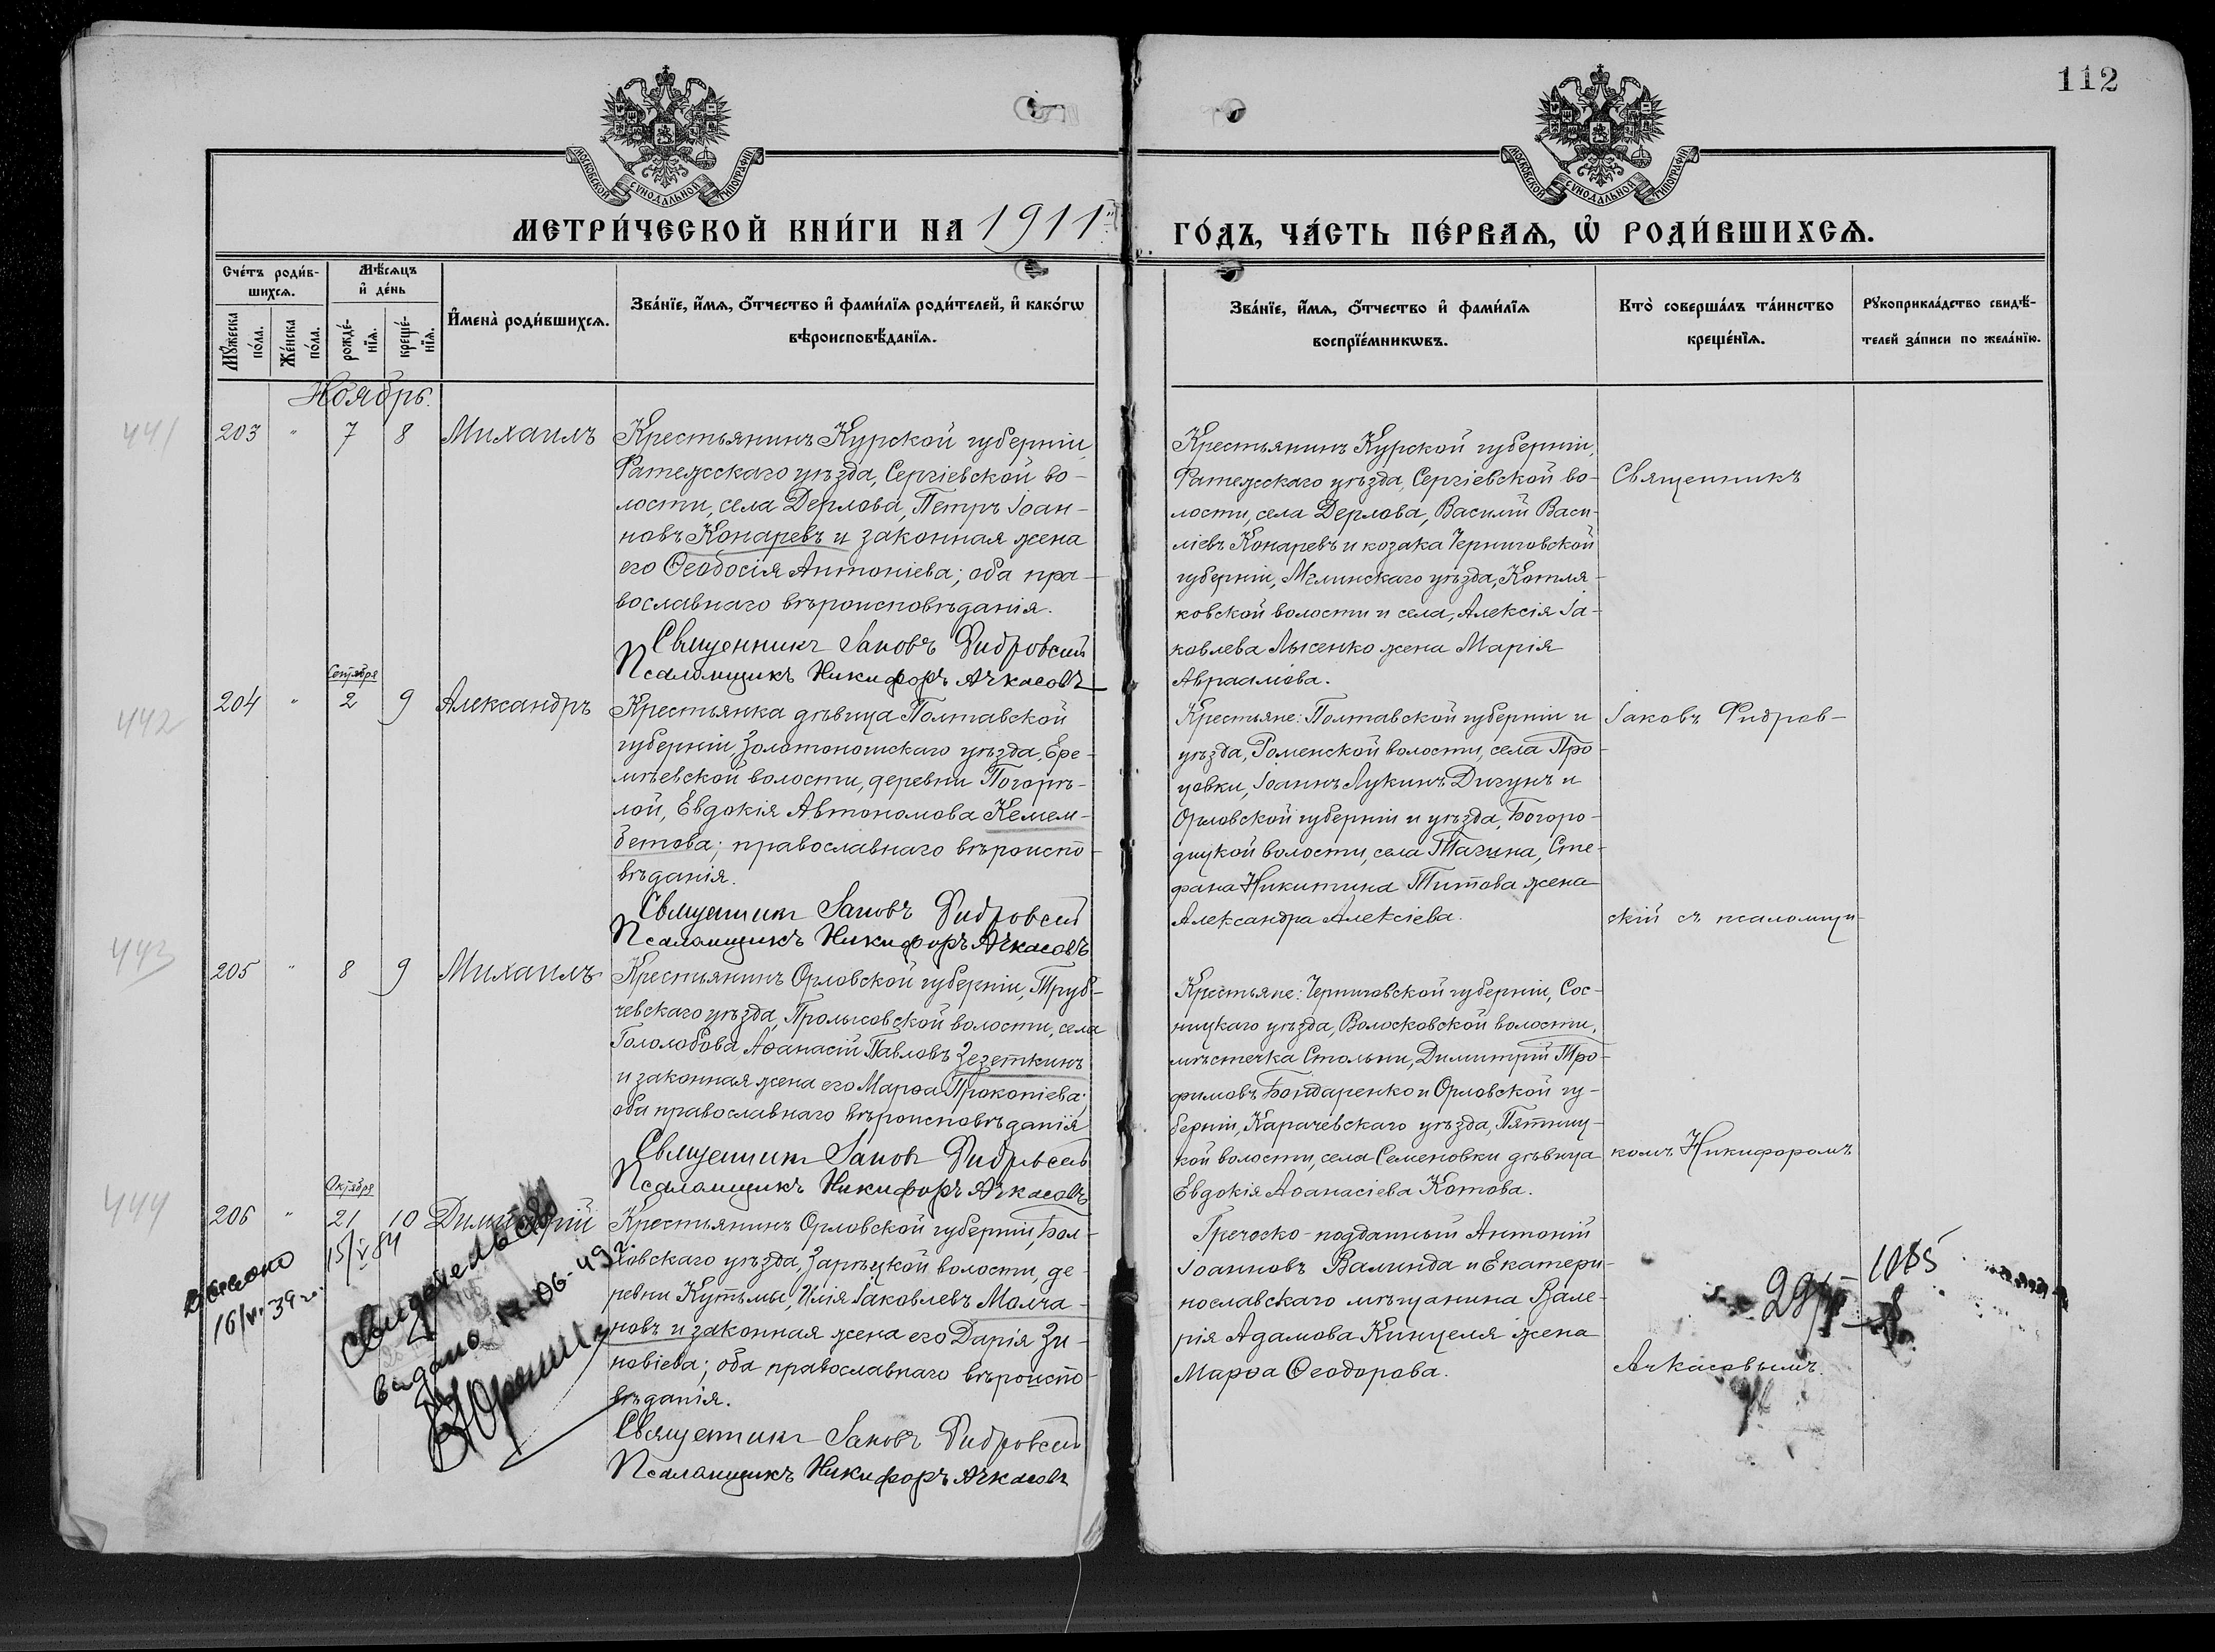 112
МОСКОВСКОЙ СѴНОДАЛЬНОЙ ТИПОГРАФІИ
МОСКОВСКОЙ СѴНОДАЛЬНОЙ ТИПОГРАФІИ
МЕТРИ́ЧЕСКОЙ КНИ́ГИ НА 1911
ГО́ДЪ, ЧА́СТЬ ПЕ́РВАѦ, Ѡ҆ РОДИ́ВШИХСѦ.
Сче́тъ роди́в-
шихсѧ.
Мꙋ́жеска
по́ла.
Же́нска
по́ла.
Мѣ́сѧцъ
и҆ де́нь
рожде́-
нїѧ.
креще́-
нїѧ.
И҆мена̀ роди́вшихсѧ.
Зва́нїе, и҆́мѧ, ѻ҆́тчество и҆ фами́лїѧ роди́телей, и҆ како́гѡ
вѣроисповѣ́данїѧ.
Зва́нїе, и҆́мѧ, ѻ҆́тчество и҆ фами́лїѧ
воспрїе́мникѡвъ.
Кто̀ соверша́лъ та́инство
креще́нїѧ.
Рꙋкоприкла́дство свидѣ́-
телей за́писи по жела́нїю.
Ноябрь.
441
203 " 7 8 Михаилъ
Крестьянинъ Курской губерніи,
Фатежскаго уѣзда, Сергіевской во-
лости, села Дерлова, Петръ Іоан-
новъ Конаревъ и законная жена
его Ѳеодосія Антоніева; оба пра-
вославнаго вѣроисповѣданія.
Священникъ Іаковъ Фидровскій
Псаломщикъ Никифоръ Ачкасовъ
Крестьянинъ Курской губерніи,
Фатежскаго уѣзда, Сергіевской во-
лости, села Дерлова, Василій Васи-
ліевъ Конаревъ и козака Черниговской
губерніи, Мглинскаго уѣзда, Котля-
ковской волости и села, Алексія Іа-
ковлева Лысенко жена Марія
Авраамова.
Священникъ
442
Сентября
204 " 2 9 Александръ
Крестьянка дѣвица Полтавской
губерніи, Золотоношскаго уѣзда, Ере-
мѣевской волости, деревни Погорѣ-
лой, Евдокія Автономова Кемем-
бетова; православнаго вѣроиспо-
вѣданія.
Священникъ Іаковъ Фидровскій
Псаломщикъ Никифоръ Ачкасовъ
Крестьяне: Полтавской губерніи и
уѣзда, Роменской волости, села Про-
цовки, Іоаннъ Лукинъ Дигунъ и
Орловской губерніи и уѣзда, Богоро-
дицкой волости, села Тагина, Сте-
фана Никитина Титова жена
Александра Алексіева.
Іаковъ Фидров-
скій съ псаломщи-
443
205 " 8 9 Михаилъ
Крестьянинъ Орловской губерніи, Труб-
чевскаго уѣзда, Пролысовской волости, села
Гололобова Аѳанасій Павловъ Зезеткинъ
и законная жена его Марѳа Прокопіева;
оба православнаго вѣроисповѣданія
Священникъ Іаковъ Фидровскій
Псаломщикъ Никифоръ Ачкасовъ
Крестьяне: Черниговской губерніи, Сос-
ницкаго уѣзда, Волосковской волости,
мѣстечка Стольни, Димитрій Тро-
фимовъ Бондаренко и Орловской гу-
берніи, Карачевскаго уѣзда, Пятниц-
кой волости, села Семеновки дѣвица
Евдокія Аѳанасіева Котова.
комъ Никифоромъ
444
Октября
206 " 21 10 Димитрій
Крестьянинъ Орловской губерніи, Бол-
ховскаго уѣзда, Зарѣцкой волости, де-
ревни Кутьмы, Илія Іаковлевъ Молча-
новъ и законная жена его Дарія Зи-
новіева; оба православнаго вѣроиспо-
вѣданія.
Священникъ Іаковъ Фидровскій
Псаломщикъ Никифоръ Ачкасовъ
Греческо-подданный Антоній
Іоанновъ Валинда и Екатери-
нославскаго мѣщанина Вале-
рія Адамова Кинцеля жена
Марѳа Ѳеодорова.
Ачкасовымъ.
15/V 84
16/VI 39 г.
Свидетельство
выдано 17-06-49 г.
1085